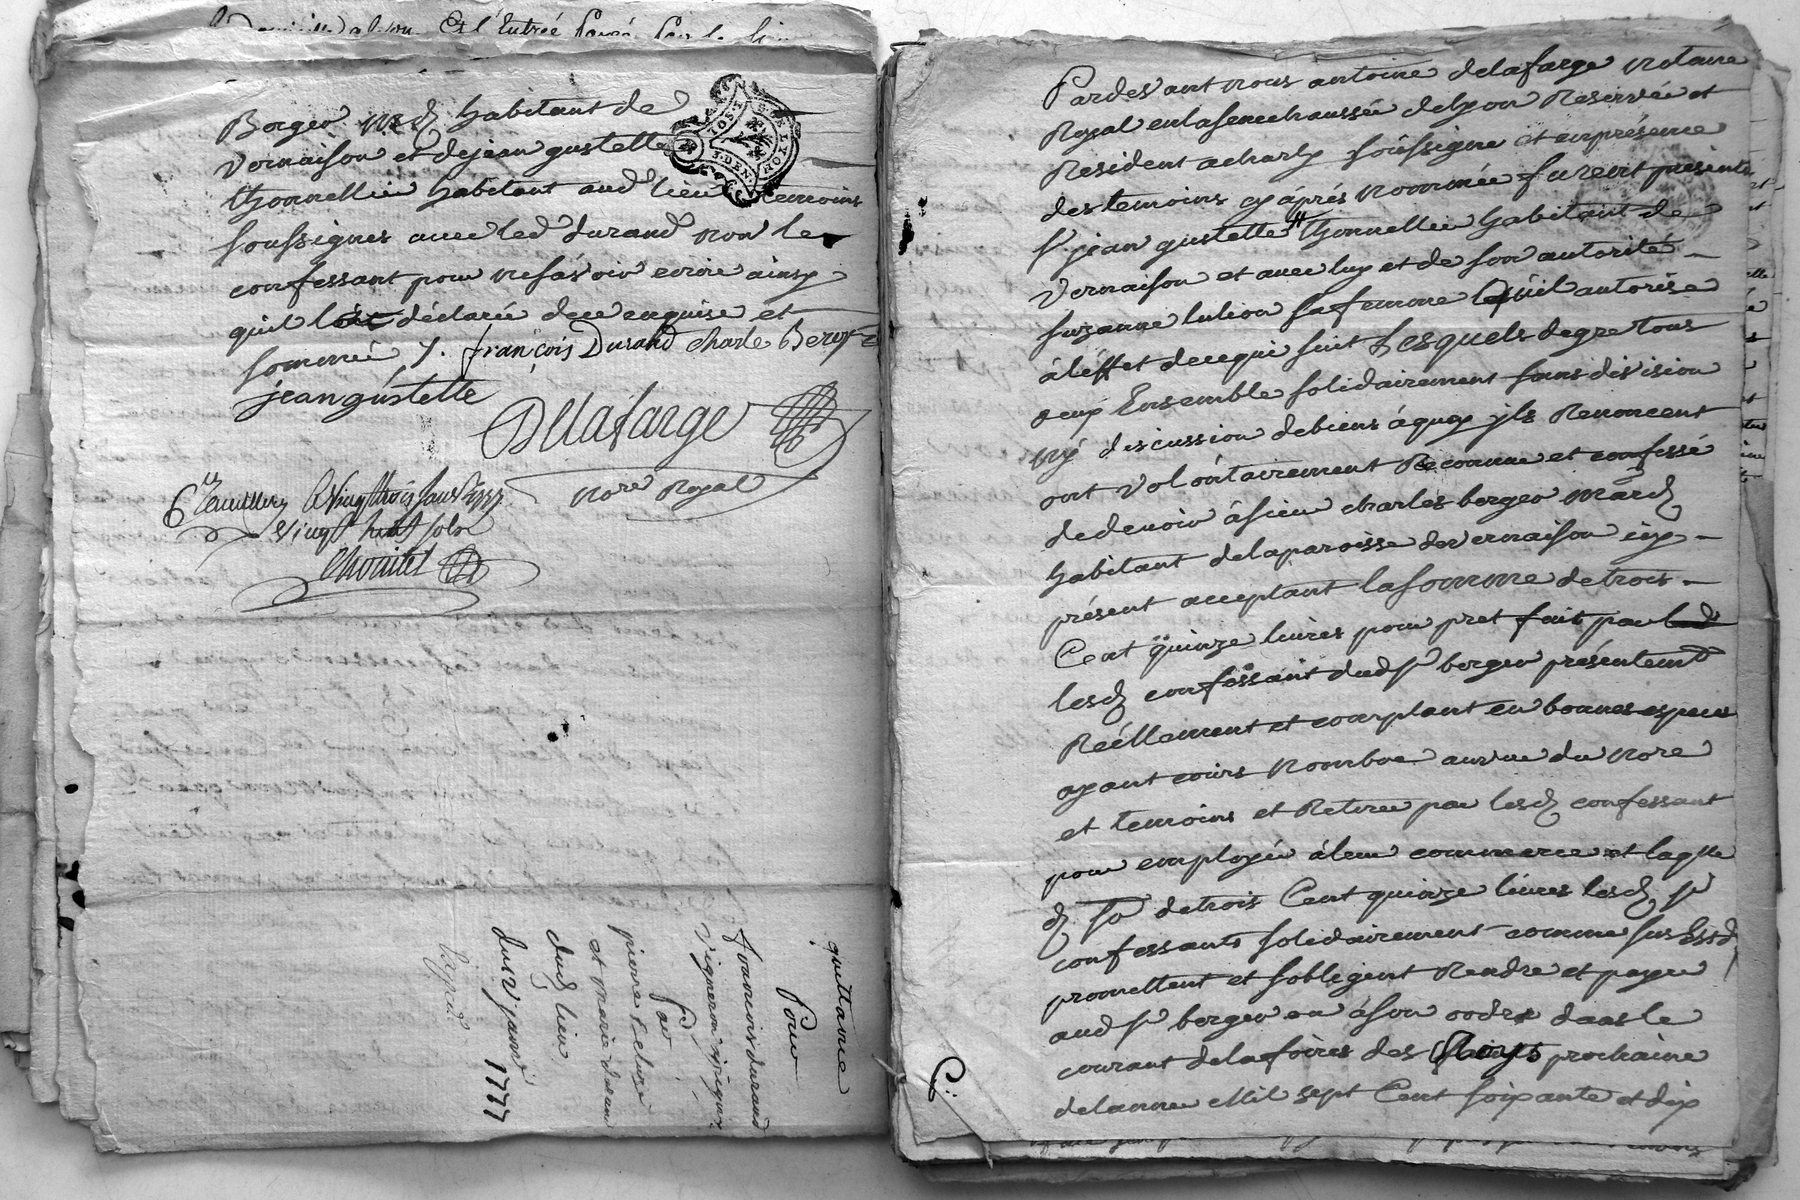 Berger md habitant de
Vernaison et de jean gustelle
thonnellier habitant aud lieu temoins
soussignes avec led durand non le
confessant pour ne sávoir ecrire ainsy
quil lont déclaré de ce enquise et
sommé /. françois Durand charle Berge
jean gustelle
Dellafarge
nore Royal
vingt huit sols
quittance
Pour
francois durand
Vigneron
Par
pierre
et marie duran
dud lieu
du 12 janvier
1777
Pardevant nous antoine delafarge notaire
Royal en la senechaussée de lyon Reservé et
Resident a charly soussigné et en présence
des temoins cy áprés nommée furent présents
sr jean gustelle thonnellier habitant de
Vernaison et avec luy et de son autorité
suzanne lulion sa femme lquil autorise
á léffet de ce qui suit Lesquels de gre tous
deux Ensemble solidairement sans division
ny discussion de biens á quoy yls Renoncent
ont volontairement Reconnu et confessé
de devoir á sieur charles berger march
habitant de la paroisse de vernaison icy
présent acceptant la somme de trois
Cent quinze livres pour pret fait par
lesd confessant dud sr berger présentemt
Réellement et comptant en bonnes especes
ayant cours Nombre au vue du Nore
et temoins et Retiree par lesd confessant
pour employer á leur commerce et laqlle
d so de trois Cent quinze livres lesd sr
confessants solidairement comme sus Est d
promettent et sobligent Rendre et payer
aud sr berger ou á son ordre dans le
courant de la foires des Roys prochaine
de lannee Mil sept Cent soixante et dix